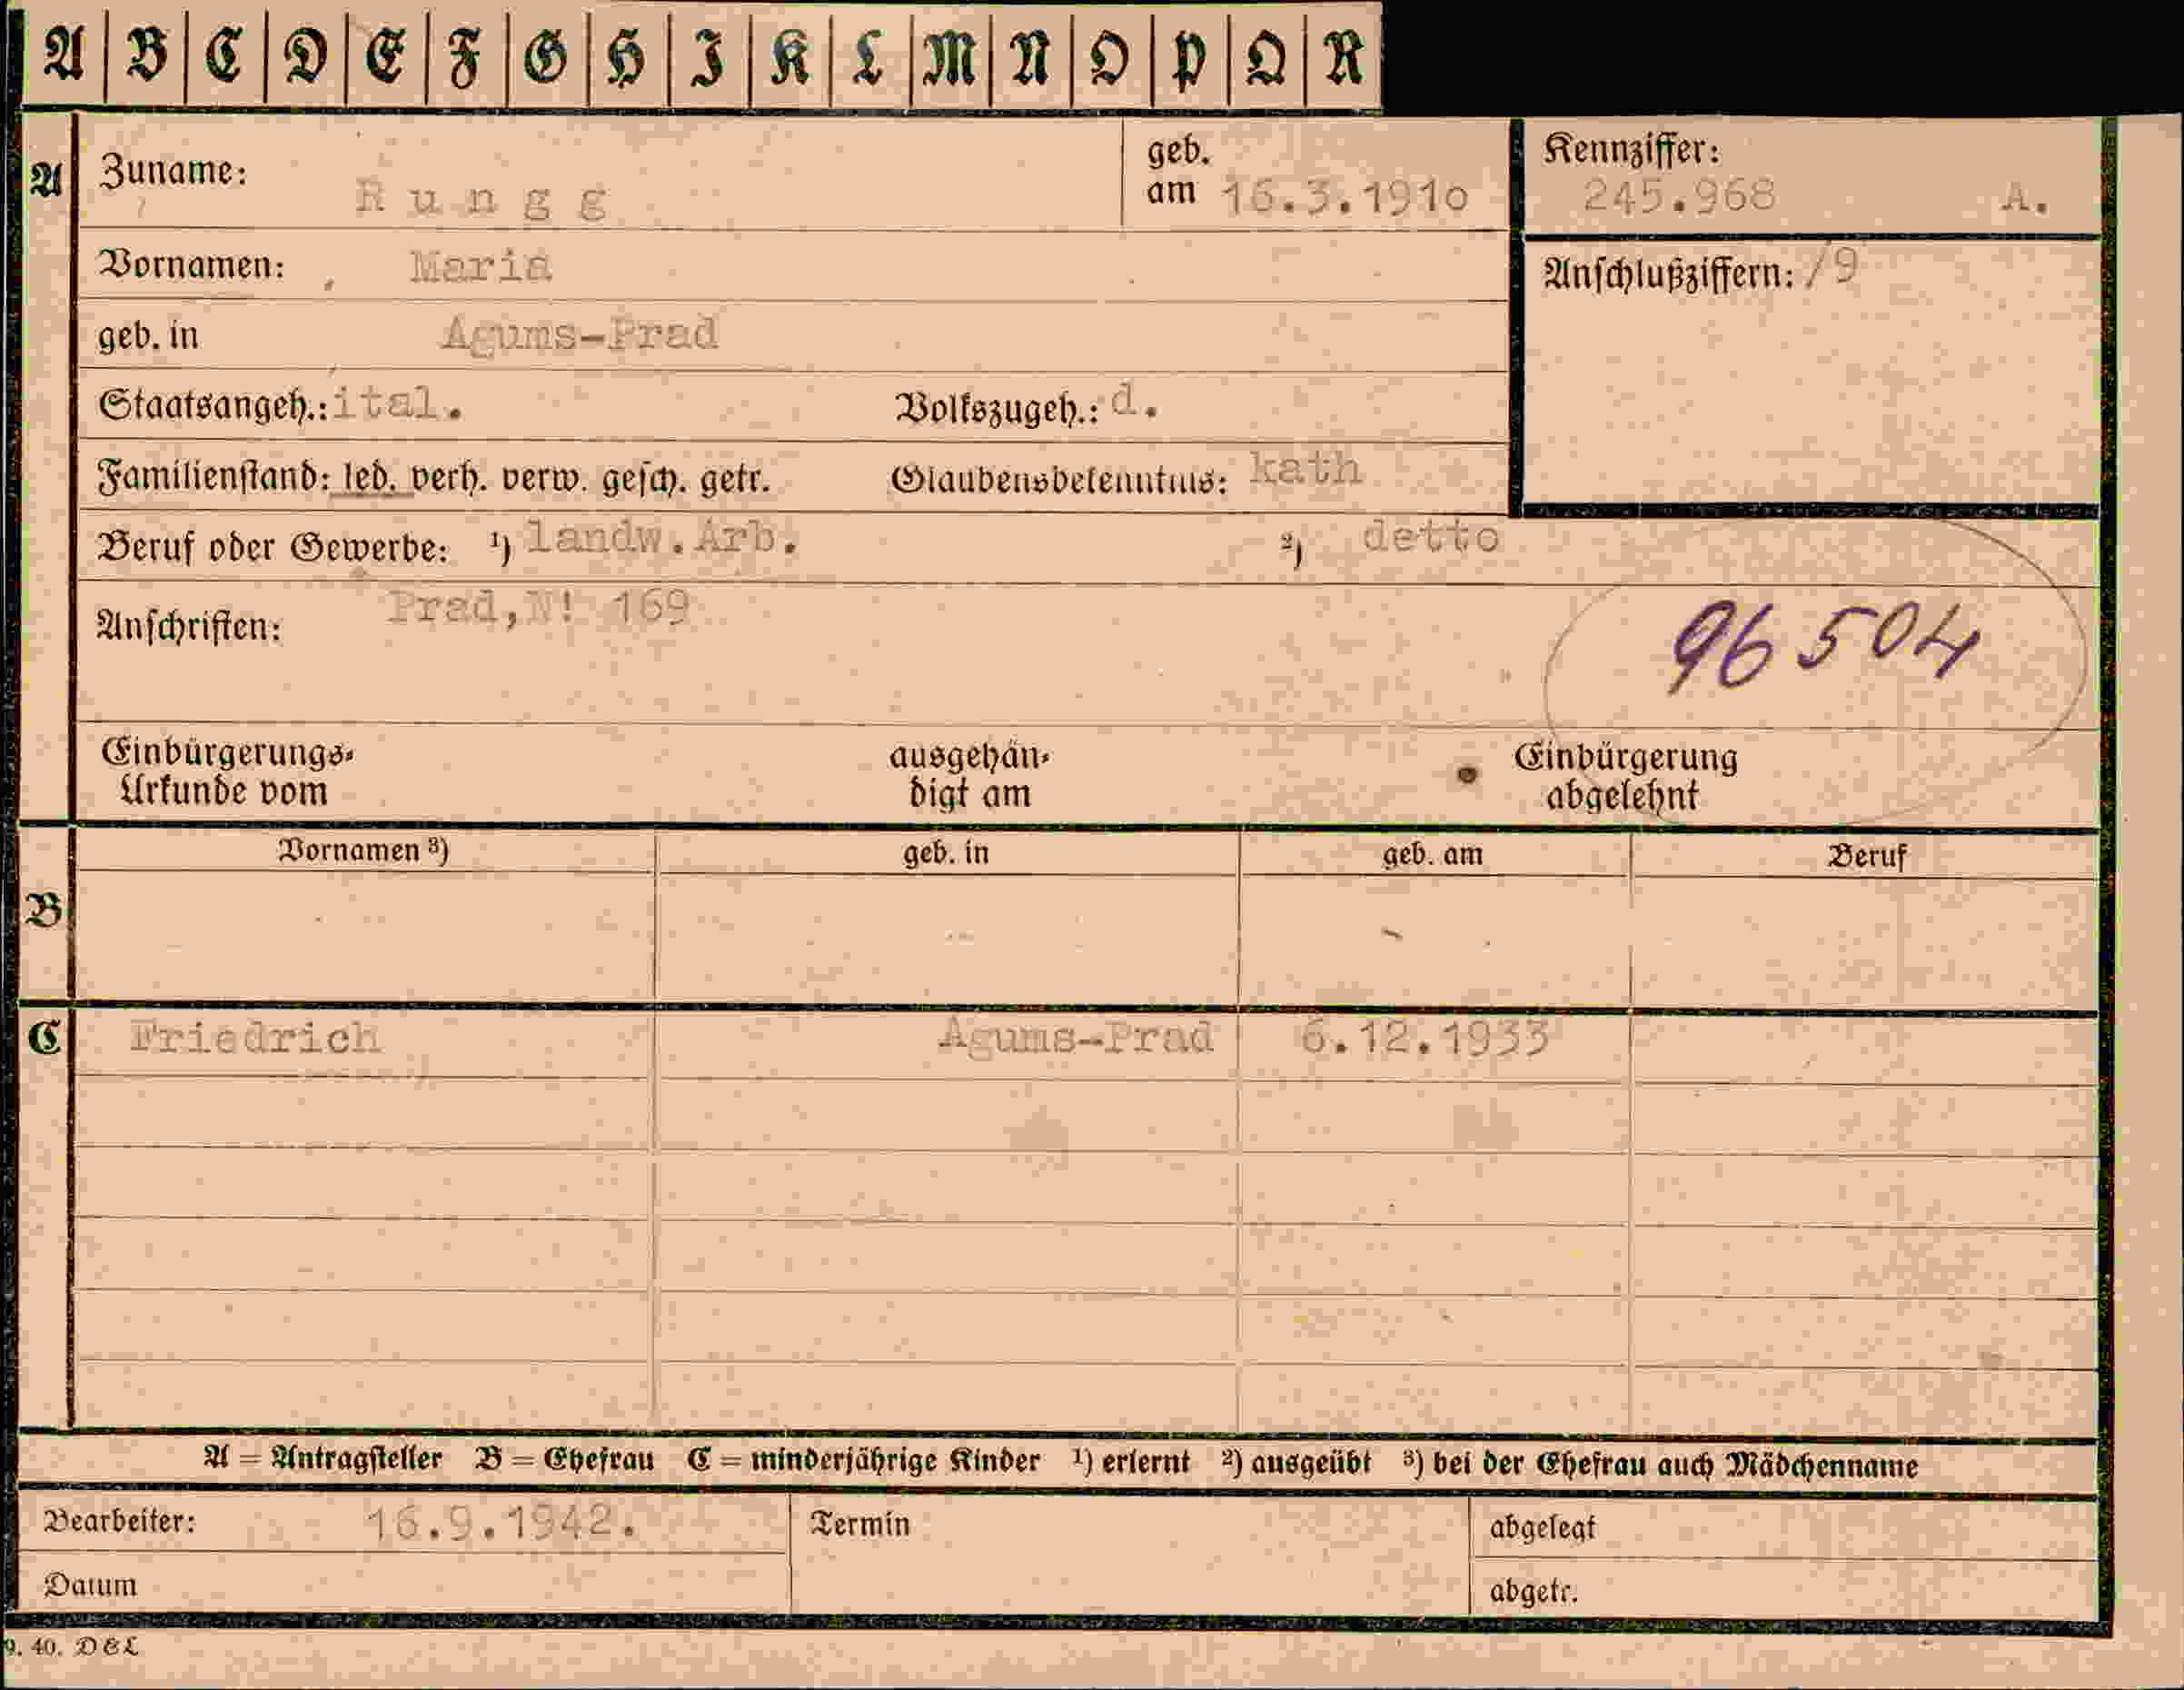 A B C D E F G H I K L M N O P Q R
A Zuname: Rungg geb. am 16.3.1910 Kennziffer: 245.968 A.
Vornamen: Maria Anschlußziffern: /9
geb. in Agums-Prad
Staatsangeh.: ital. Volkszugeh.: d.
Familienstand: led. verh. verw. gesch. getr. Glaubensbekenntnis: kath
Beruf oder Gewerbe: ¹) landw.Arb. ²) detto
Anschriften: Prad,N! 169
96504
Einbürgerungs- ausgehän- Einbürgerung
Urkunde vom digt am abgelehnt
Vornamen ³) geb. in geb. am Beruf
B
C Friedrich Agums-Prad 6.12.1933
A = Antragsteller B = Ehefrau C = minderjährige Kinder ¹) erlernt ²) ausgeübt ³) bei der Ehefrau auch Mädchenname
Bearbeiter: 16.9.1942. Termin abgelegt
Datum abgetr.
9. 40. DEL